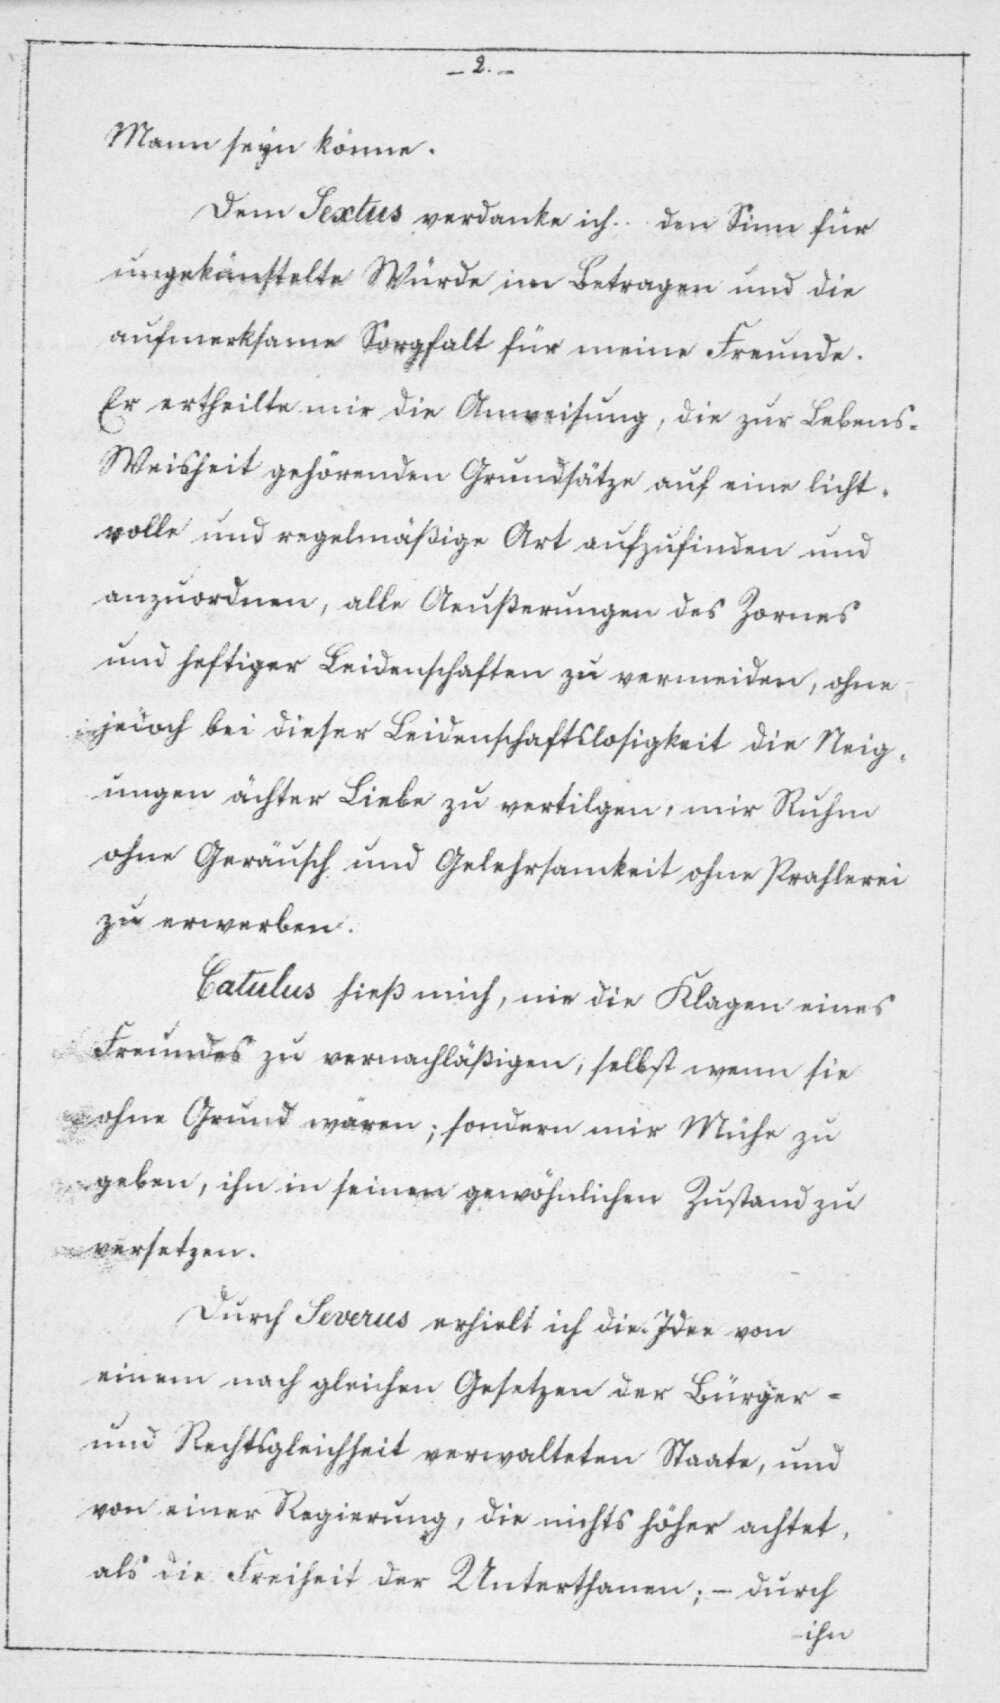 – 2. –
Mann seyn könne.
Dem Sextus verdanke ich.. den Sinn für
ungekünstelte Würde im Betragen und die
aufmerksame Sorgfalt für meine Freunde.
Er ertheilte mir die Anweisung, die zur Lebens-
Weisheit gehörenden Grundsätze auf eine licht-
volle und regelmäßige Art aufzufinden und
anzuordnen, alle Aeußerungen des Zornes
und heftiger Leidenschaften zu vermeiden, ohne
jedoch bei dieser Leidenschaftslosigkeit die Neig-
ungen ächter Liebe zu vertilgen, mir Ruhm
ohne Geräusch und Gelehrsamkeit ohne Prahlerei
zu erwerben.
Catulus hieß mich, nie die Klagen eines
Freundes zu vernachläßigen, selbst wenn sie
ohne Grund wären; sondern mir Mühe zu
geben, ihn in seinen gewöhnlichen Zustand zu
versetzen.
Durch Severus erhielt ich die Idee von
einem nach gleichen Gesetzen der Bürger-
und Rechtsgleichheit verwalteten Staate, und
von einer Regierung, die nichts höher achtet,
als die Freiheit der Unterthanen; – durch
ihn